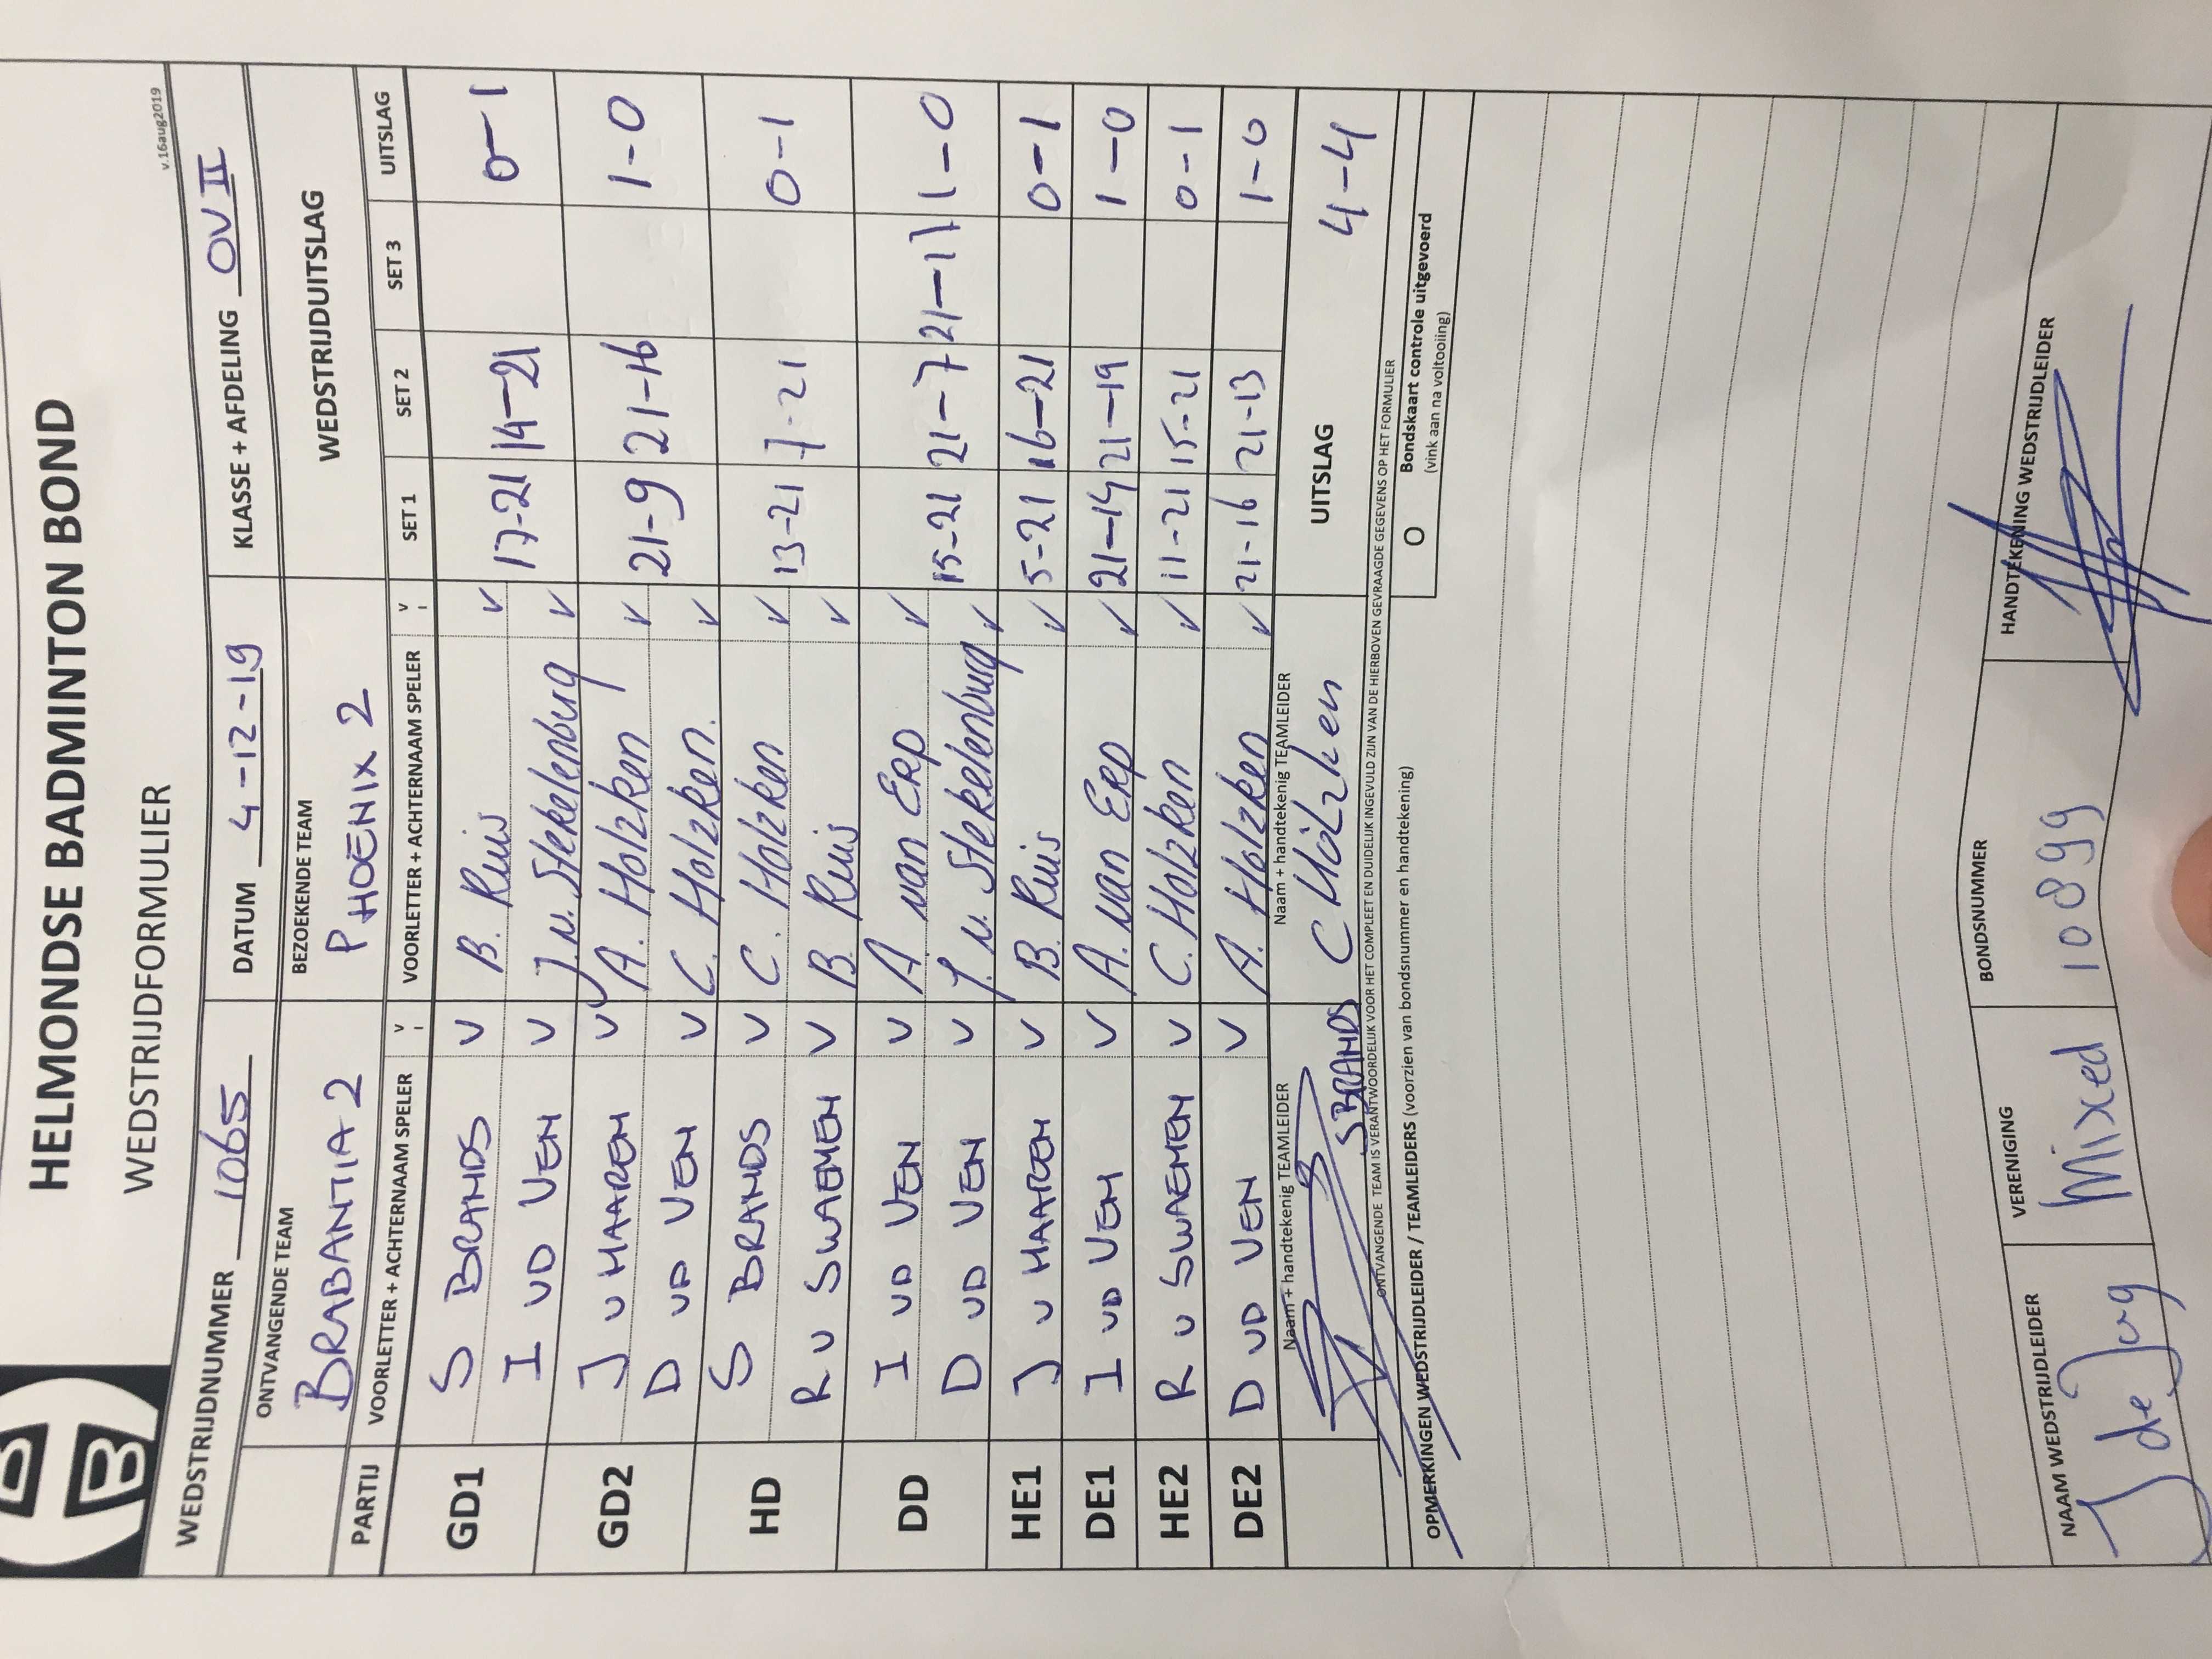 HELMONDSE BADMINTON BOND
WEDSTRIJDFORMULIER
v.16aug2019
WEDSTRIJDNUMMER 1065 DATUM 4-12-19 KLASSE + AFDELING OV II
ONTVANGENDE TEAM BEZOEKENDE TEAM WEDSTRIJDUITSLAG
BRABANTIA 2 PHOENIX 2
PARTIJ VOORLETTER + ACHTERNAAM SPELER V VOORLETTER + ACHTERNAAM SPELER V SET 1 SET 2 SET 3 UITSLAG
GD1 S BRANDS V B. Ruis V 17-21 14-21 0-1
I VD VEN V J. v. Stekelenburg V
GD2 J V HAAREN V A. Holzken V 21-9 21-16 1-0
D VD VEN V C. Holzken. V
HD S BRANDS V C. Holzken V 13-21 7-21 0-1
R V SWAEMEN V B. Ruis V
DD I VD VEN V A van Erp V 15-21 21-7 21-17 1-0
D VD VEN V J. v. Stekelenburg V
HE1 J V HAAREN V B. Ruis V 5-21 16-21 0-1
DE1 I VD VEN V A. van Erp V 21-14 21-19 1-0
HE2 R V SWAEMEN V C. Holzken V 11-21 15-21 0-1
DE2 D VD VEN V A. Holzken V 21-16 21-13 1-0
Naam + handtekenig TEAMLEIDER Naam + handtekenig TEAMLEIDER UITSLAG 4-4
S BRANDS C Holzken
ONTVANGENDE TEAM IS VERANTWOORDELIJK VOOR HET COMPLEET EN DUIDELIJK INGEVULD ZIJN VAN DE HIERBOVEN GEVRAAGDE GEGEVENS OP HET FORMULIER
OPMERKINGEN WEDSTRIJDLEIDER / TEAMLEIDERS (voorzien van bondsnummer en handtekening) O Bondskaart controle uitgevoerd
(vink aan na voltooiing)
NAAM WEDSTRIJDLEIDER VERENIGING BONDSNUMMER HANDTEKENING WEDSTRIJDLEIDER
J de Jong Mixed 10899